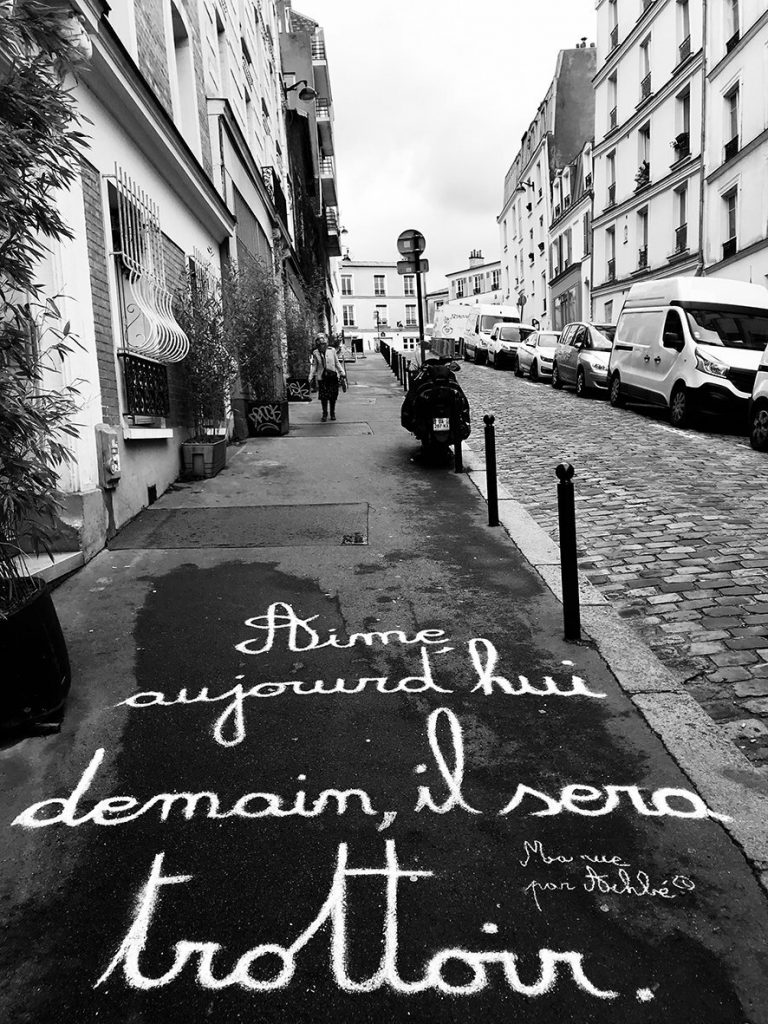 Aime,
aujourd'hui
demain, il sera
trottoir.
Ma rue
par Achbé